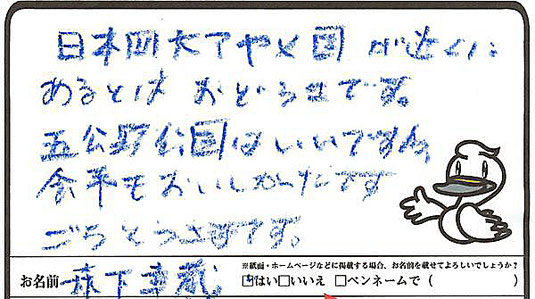 日本四大アヤメ園が近くに
あるとは おどろきです。
五公野公園はいいですね、
余平もおいしかったです
ごちそうさまです。
※紙面・ホームページなどに掲載する場合、お名前を載せてよろしいでしょうか?
お名前 森下幸蔵 ☑はい□いいえ □ペンネームで( )